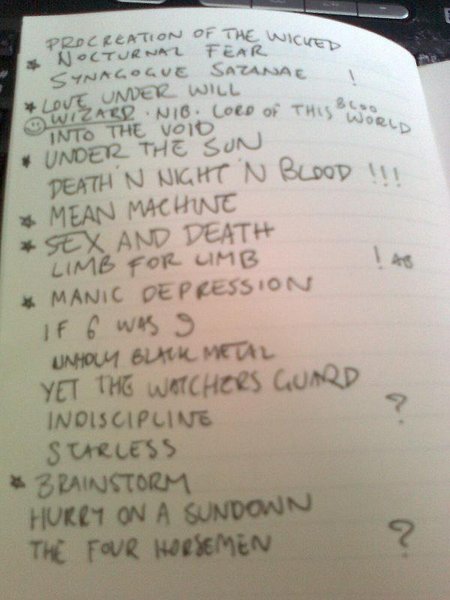 PROCREATION OF THE WICKED
* NOCTURNAL FEAR
SYNAGOGUE SATANAE !
* LOVE UNDER WILL
☺ WIZARD · NIB · LORD OF THIS WORLD
INTO THE VOID
* UNDER THE SUN
DEATH 'N NIGHT 'N BLOOD !!!
* MEAN MACHINE
* SEX AND DEATH
LIMB FOR LIMB !
* MANIC DEPRESSION
IF 6 WAS 9
UNHOLY BLACK METAL
YET THE WATCHERS GUARD
INDISCIPLINE ?
STARLESS
* BRAINSTORM
HURRY ON A SUNDOWN
THE FOUR HORSEMEN ?